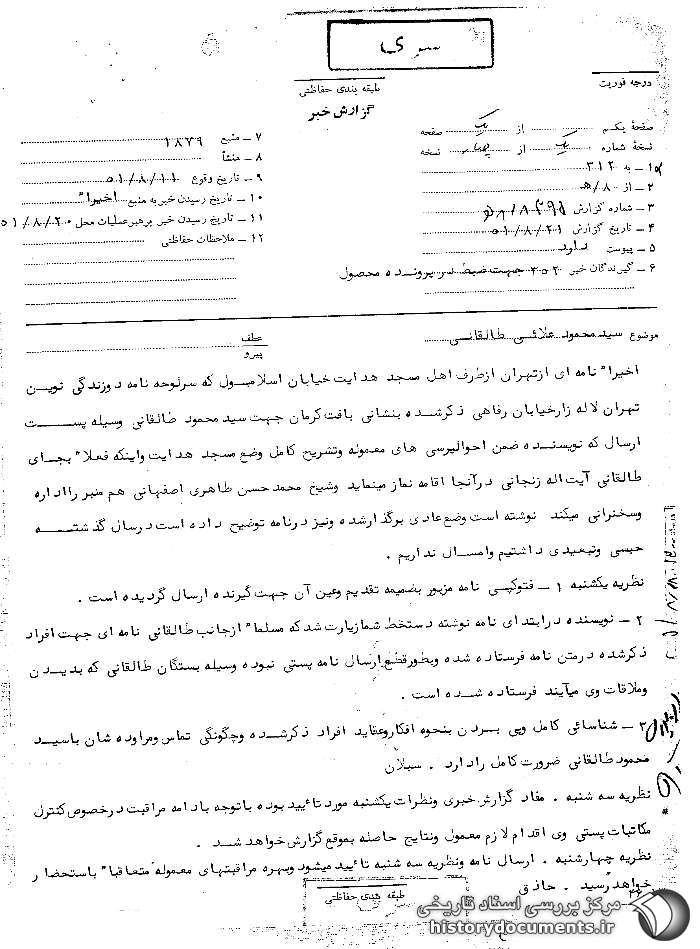 سری
طبقه بندی حفاظتی
درجه فوریت
گزارش خبر
صفحهٔ یکم از یک صفحه
نسخهٔ شماره یک از چهار نسخه
۱ـ به ۳۱۲
۲ـ از ۸/هـ
۳ـ شماره گزارش
۴ـ تاریخ گزارش ۵۱/۸/۲۱
۵ـ پیوست دارد
۶ـ گیرندگان خبر ۳۰۲ جهت ضبط در پرونده محصول
۷ـ منبع ۱۸۷۹
۸ـ منشأ
۹ـ تاریخ وقوع ۵۱/۸/۱۱
۱۰ـ تاریخ رسیدن خبر به منبع اخیرا"
۱۱ـ تاریخ رسیدن خبر برهبر عملیات محل ۵۱/۸/۲۰
۱۲ـ ملاحظات حفاظتی
موضوع سید محمود علائی طالقانی
عطف
پیرو
اخیرا" نامه ای از تهران از طرف اهل مسجد هدایت خیابان اسلامبول که سرلوحه نامه دوزندگی نوین
تهران لاله زار خیابان رفاهی ذکر شده بنشانی بافت کرمان جهت سید محمود طالقانی وسیله پست
ارسال که نویسنده ضمن احوالپرسی های معموله وتشریح کامل وضع مسجد هدایت واینکه فعلا" بجای
طالقانی آیت اله زنجانی درآنجا اقامه نماز مینماید وشیخ محمد حسن طاهری اصفهانی هم منبر را اداره
وسخنرانی میکند نوشته است وضع عادی برگذار شده ونیز درنامه توضیح داده است درسال گذشته
حبسی وتبعیدی داشتیم وامسال نداریم .
نظریه یکشنبه ۱ ـ فتوکپی نامه مزبور بضمیمه تقدیم وعین آن جهت گیرنده ارسال گردیده است .
۲ ـ نویسنده درابتدای نامه نوشته دستخط شما زیارت شد که مسلما" ازجانب طالقانی نامه ای جهت افراد
ذکر شده درمتن نامه فرستاده شده وبطور قطع ارسال نامه پستی نبوده وسیله بستگان طالقانی که بدیدن
وملاقات وی میآیند فرستاده شده است .
۳ ـ شناسائی کامل وپی بردن بنحوه افکار وعقاید افراد ذکر شده وچگونگی تماس ومراوده شان باسید
محمود طالقانی ضرورت کامل رادارد . سبلان
نظریه سه شنبه . مفاد گزارش خبری ونظرات یکشنبه مورد تائید بوده باتوجه بادامه مراقبت درخصوص کنترل
مکاتبات پستی وی اقدام لازم معمول ونتایج حاصله بموقع گزارش خواهد شد .
نظریه چهارشنبه . ارسال نامه ونظریه سه شنبه تائید میشود وبهره مراقبتهای معموله متعاقبا" باستحضار
خواهد رسید . حاذق
طبقه بندی حفاظتی
مرکز بررسی اسناد تاریخی
historydocuments.ir